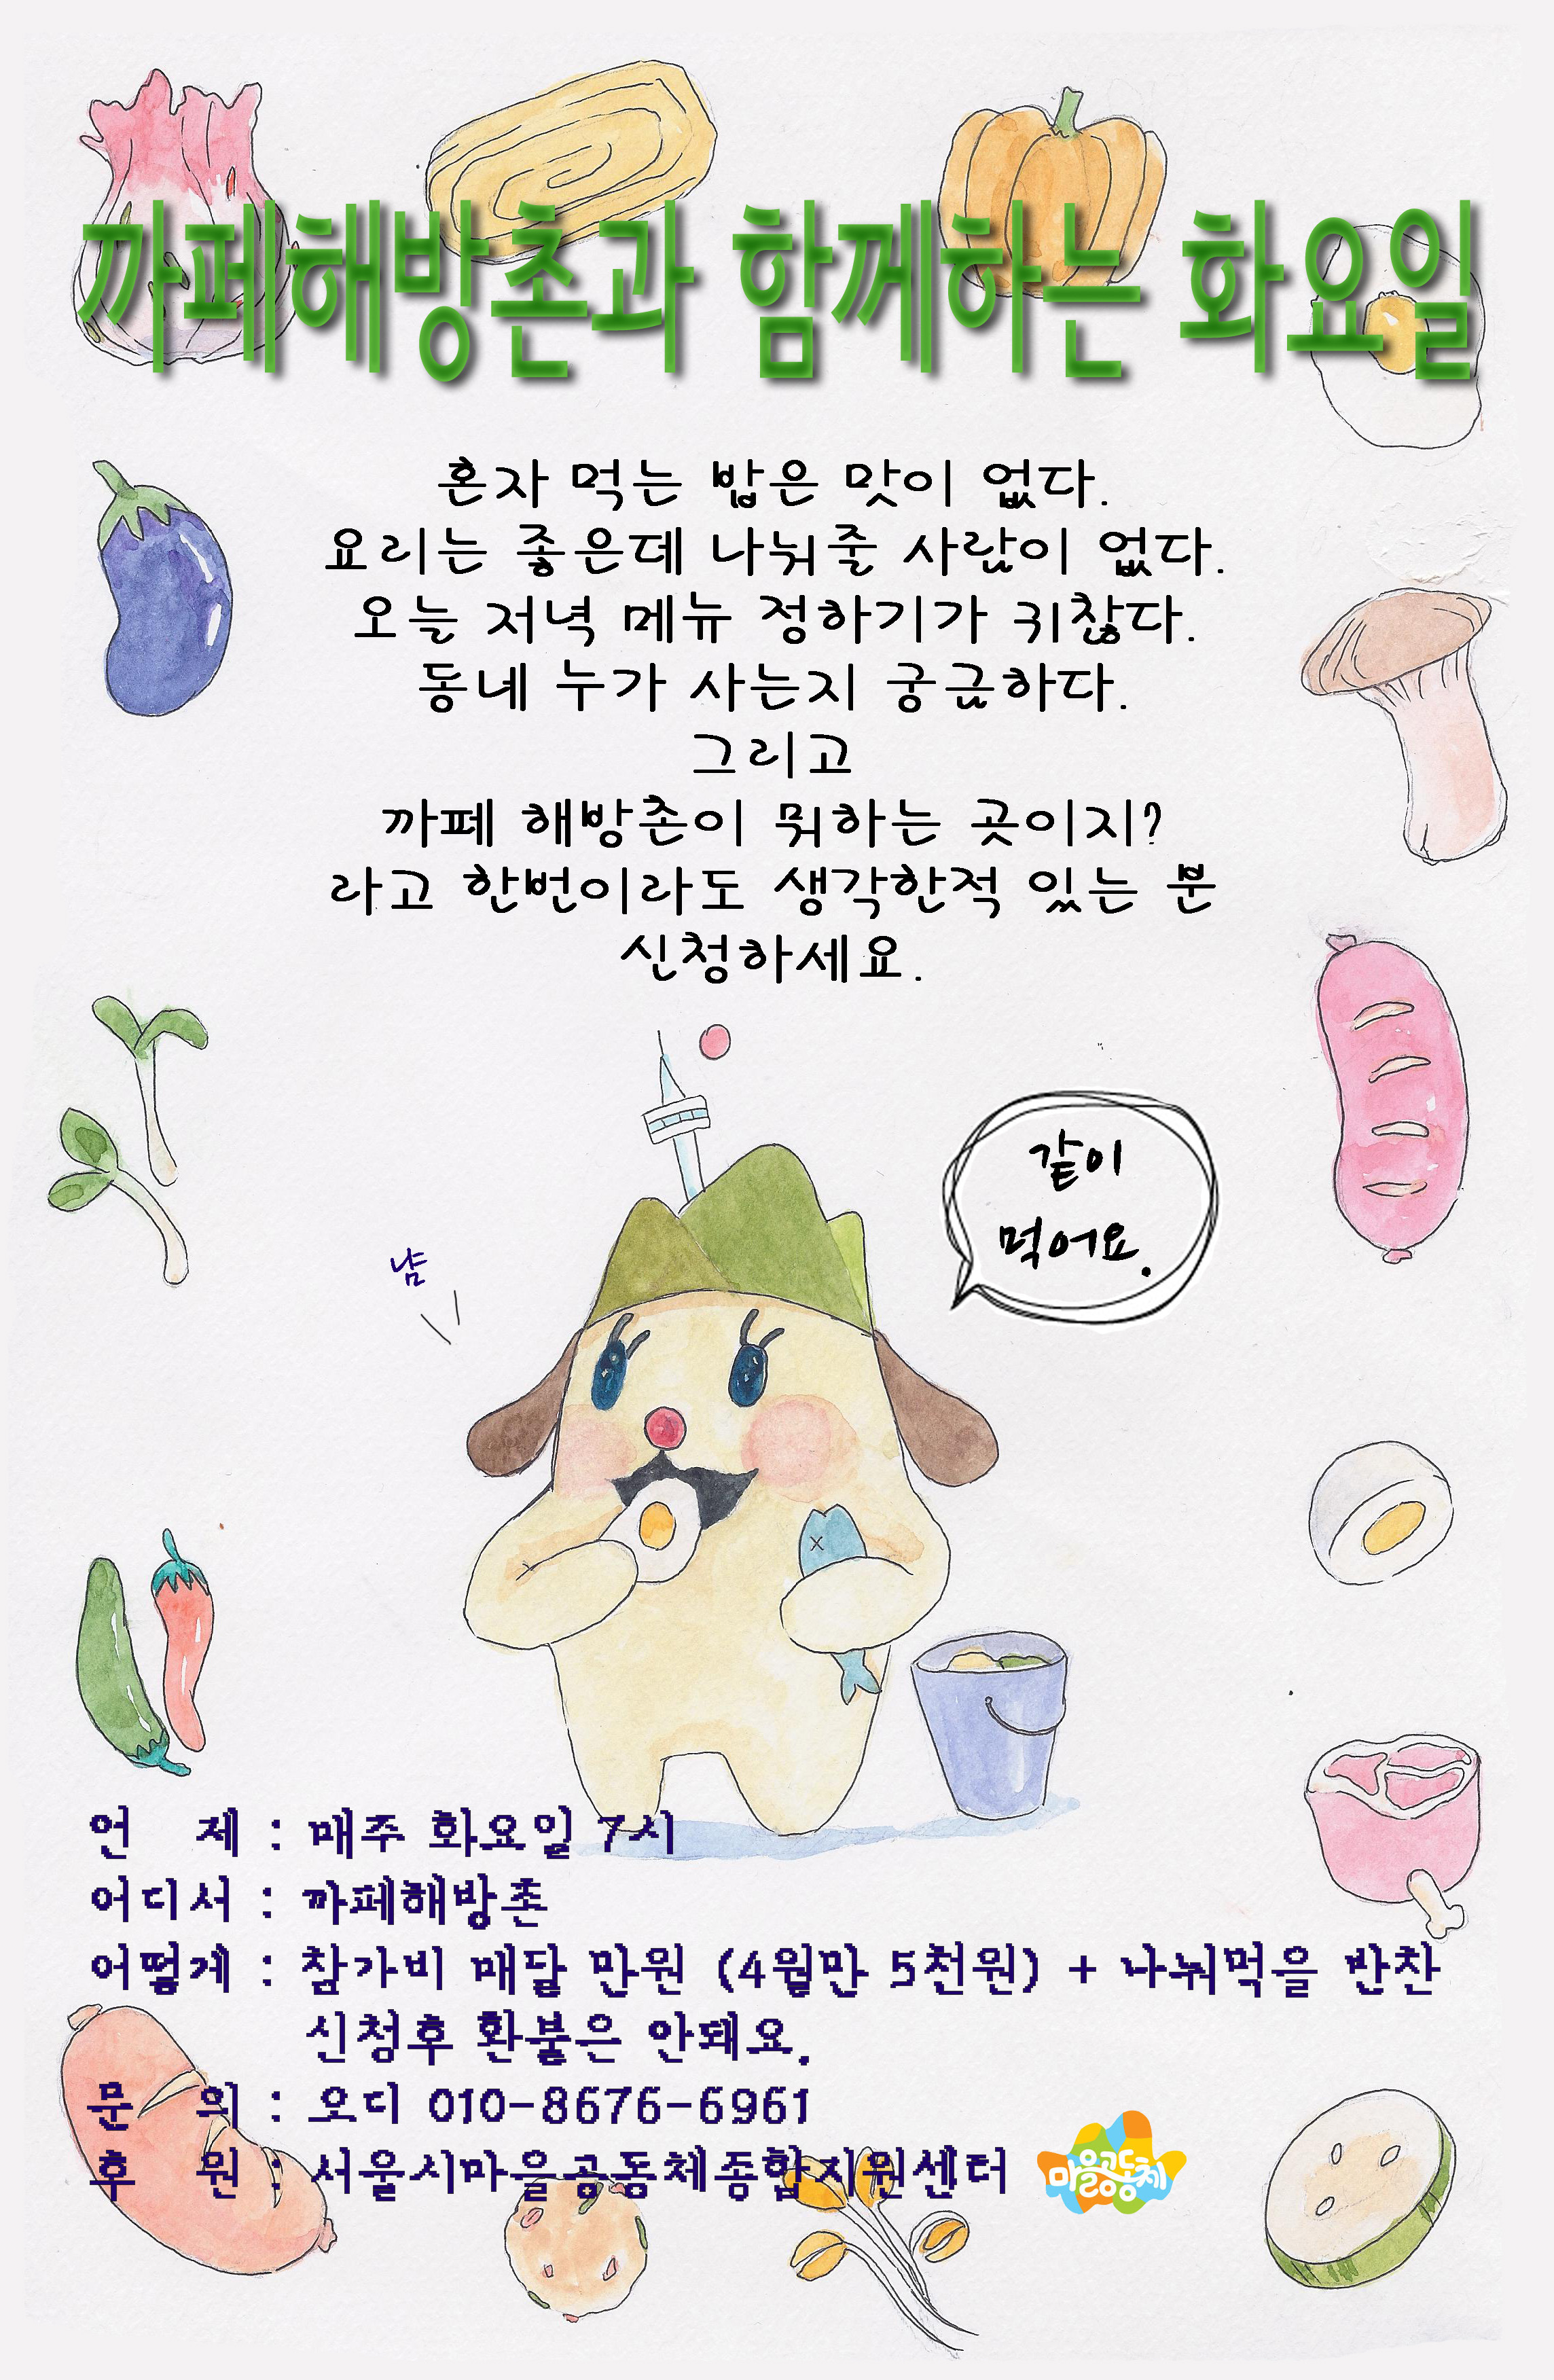 까페해방촌과 함께하는 화요일
혼자 먹는 밥은 맛이 없다.
요리는 좋은데 나눠줄 사람이 없다.
오늘 저녁 메뉴 정하기가 귀찮다.
동네 누가 사는지 궁금하다.
그리고
까페 해방촌이 뭐하는 곳이지?
라고 한번이라도 생각한적 있는 분
신청하세요.
같이
먹어요.
냠
언 제 : 매주 화요일 7시
어디서 : 까페해방촌
어떻게 : 참가비 매달 만원 (4월만 5천원) + 나눠먹을 반찬
신청후 환불은 안돼요.
문 의 : 오디 010-8676-6961
후 원 : 서울시마을공동체종합지원센터
마을공동체